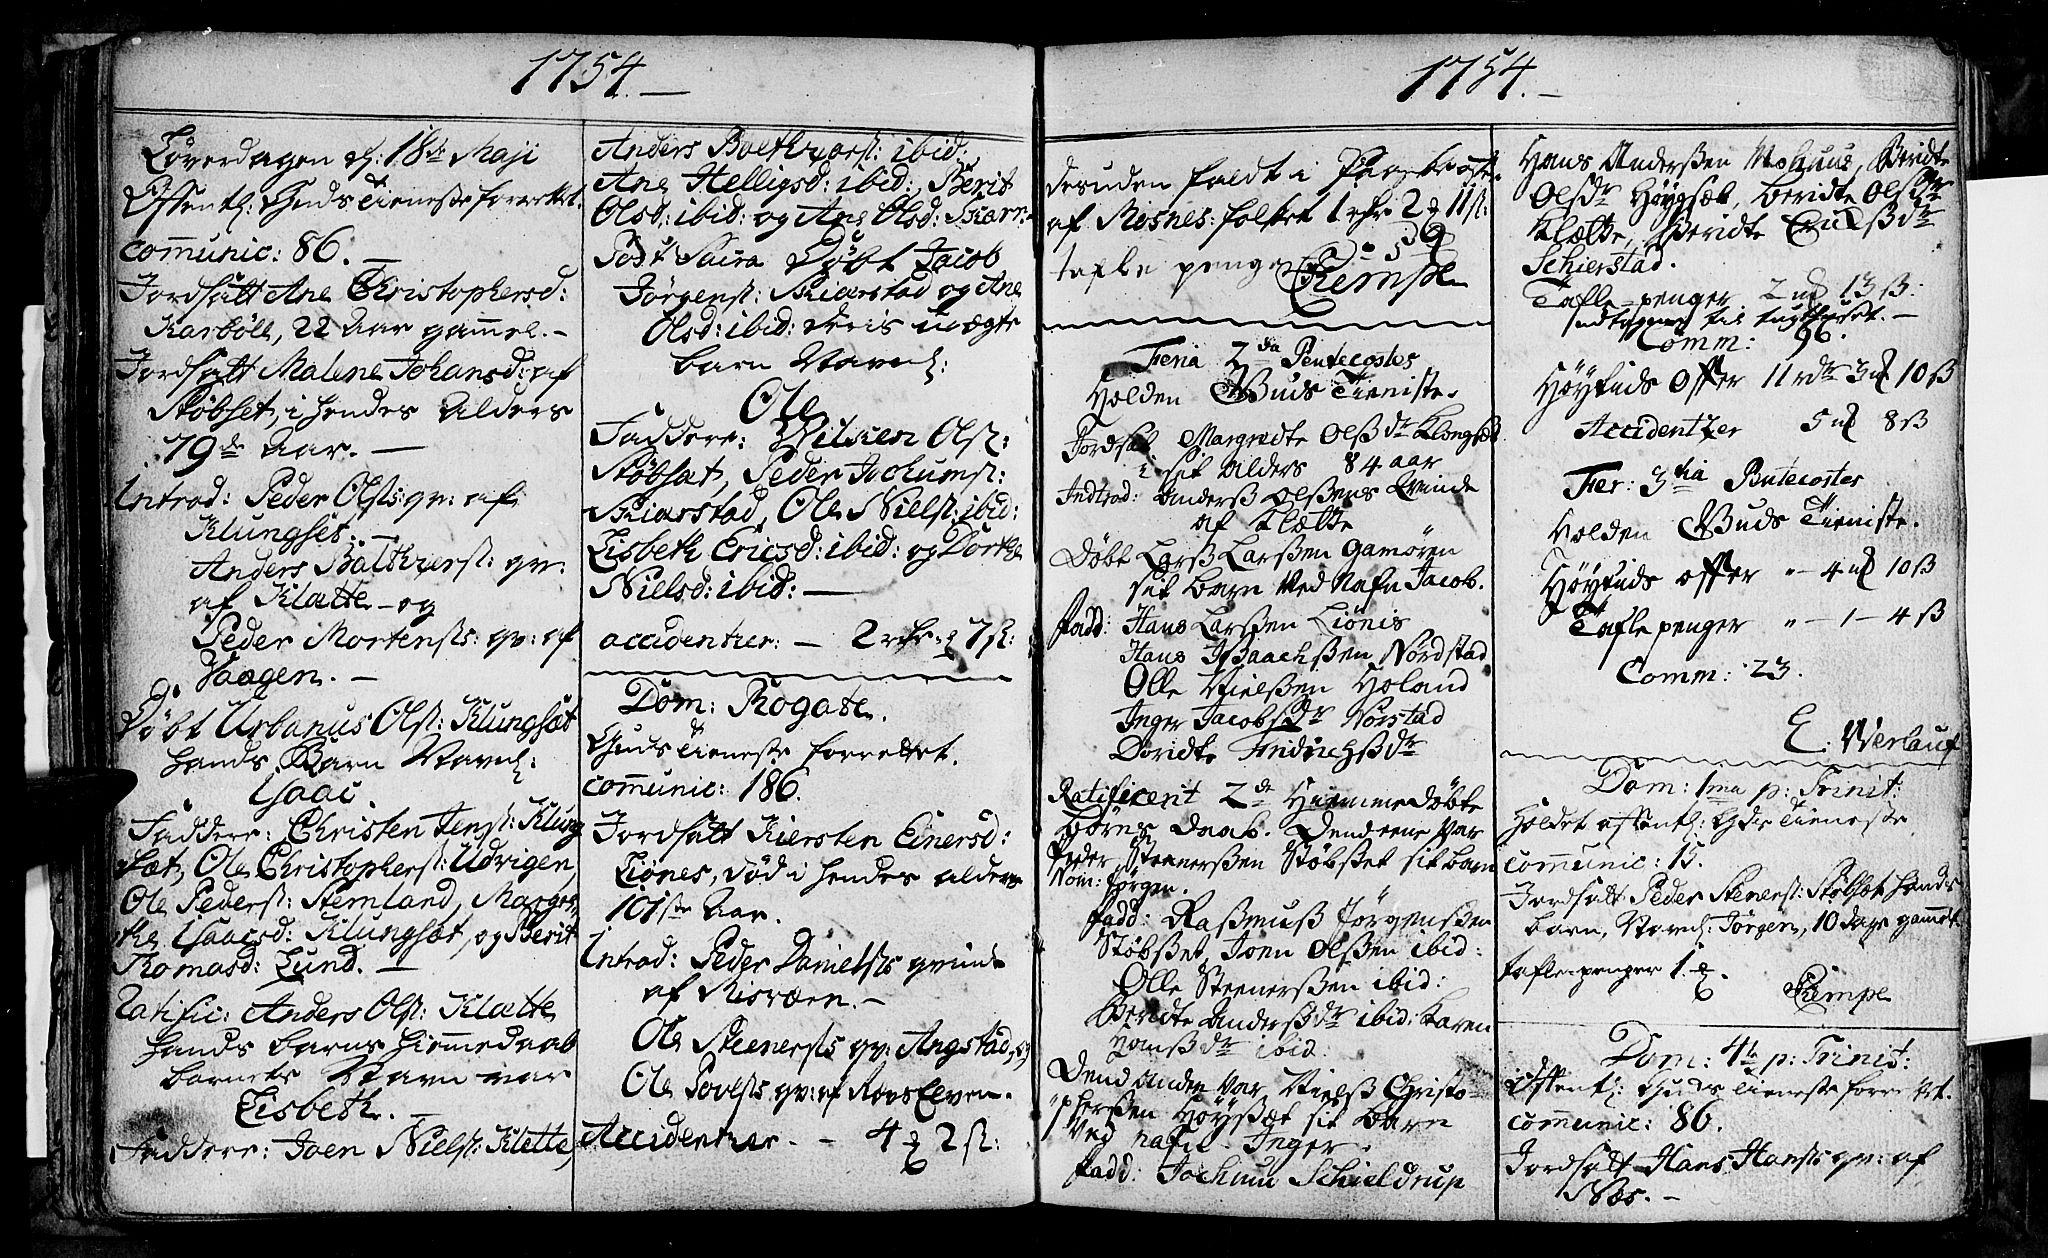 1754.
Løverdagen d: 18de Maji
Offentl: Guds Tieneste forrettet.
com̄unic: 86.
Jordsatt Ane Christophersd:
Karbøll, 22 Aar gam̄el.
Jordsatt Malene Johansd: af
Støbset, i hendes Alders
79de Aar.
Introd: Peder Olsøns qv: af
Klungset.
Anders Balthzersl: qv:
af Klætte og
Peder Mortens: qv: af
Vaagen.
Døbt Urbanus Olsl: Klungsæt
hands Barn Navnl:
Isaac.
Faddere: Christen Jensl: Klung
sæt, Ole Christophersl: Udvigen,
Ole Pedersl: Stemland, Margre-
the Isaacsd: Klungsæt, og Berit
Thomasd: Lund.
Ratific: Anders Olsl: Klætte
hands barns hiem̄edaab
barnets Navn var
Lisbeth.
Faddere: Joen Nielsl: Klette,
Anders Balthzarsl: ibid:
Ane Helligsd: ibid:, Berit
Olsd: ibid: og Ane Olsd: Kar
Post Sacra Døbt Jacob
Jørgensl: Skiarstad og Ane
Olsd: ibid: deris uægte
barn Navnl:
Ole
Faddere: Nilsken Olsl:
Støbsæt, Peder Jochumsl:
Skiarstad, Ole Nielsl: ibid:
Lisbeth Ericsd: ibid: og Dorthe
Nielsd: ibid:
accidentier: 2 7sl:
Dom: Rogate.
Guds Tieneste forrettet.
com̄unic: 186.
Jordsatt Kiersten Einersd:
Liønes, død i hendes alders
101ste Aar.
Introd: Peder Daniels qvinde
af Misværn.
Ole Steeners qv: Angstad,
Ole Povels qv: af Elven.
Accidentier. 4 2 sl:
1754.
desuden faldt i
af Misnes: folket 1 rdr 2 11sl:
tafle penge
Kempe
Feria 2da Pentecostes
Holden Guds Tieniste.
Jordsat. Margredte Olsdr Klongsæt
i sit alders 84 aar
Indtrod: Anderß Olßens Qvinde
af Klætte
Døbt Larß Larßen Gamøren
sit barn ved Nafn Jacob.
fadd: Hans Larßen Liønis
Hans Isaachßen Nordstad
Olle Nielßen Holand
Inger Jacobsdr Norstad
Doridte Hindrichßdr
Ratificert 2de Hiemmedøbte
børns daab. Dend eene var
Peder Steenerßen Støbßet sit barn
Nom: Jørgen.
fadd: Rasmuß Jørgenßen
Støbßet, Joen Olßen ibid:
Olle Steenerßen ibid:
Beridte Andersdr ibid: Karen
Hanßdr ibid:
Dend anden var Nielß Christo-
pherßen Høyßæt sit barn
ved nafn Inger
fadd: Jochum Schieldrup
Hans Anderßen Beridte
Olßdr Høygsæt, beridte Olßdr
Klætte, Beridte Erickßdr
Schierstad.
Tafle-penger 2 13 ß:
til
Comm: 96.
Høytids Offer 11 rdr 3 10 ß
Accidentzer 5 8 ß
Fer: 3tia Pentecostes
Holden Guds Tieniste.
Høytids offer „ 4 10 ß
Tafle penger „ 1 4 ß
Comm: 23.
E. Werlauf
Dom: 1ma p: Trinit:
Holdet offentl: Guds Tieneste
com̄unic: 15.
Jordsatt Peder Stenersl: Støbsæt hands
barn, Navnl: Jørgen, 10 dage gam̄elt
tafle-penger 1
Kempe
Dom: 4ta p: Trinit:
Offentl: Guds Tieneste forrettet.
com̄unic: 86.
Jordsatt Hans Hans qv: af
Næs.